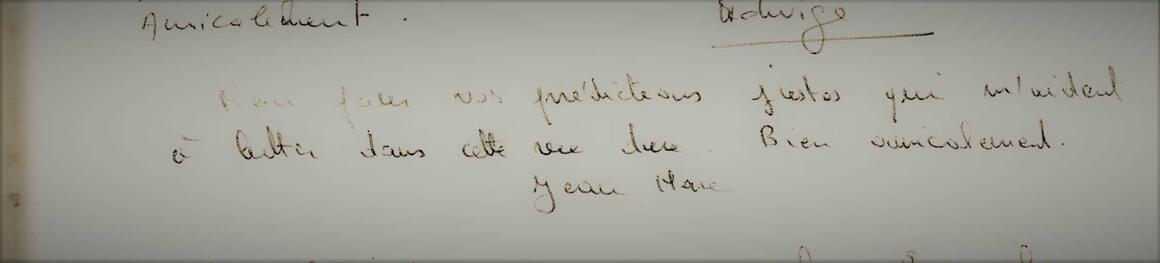 Amicalement. Edwige
Merci pour vos prédictions justes qui m'aident
à lutter dans cette vie dure. Bien amicalement.
Jean Marc